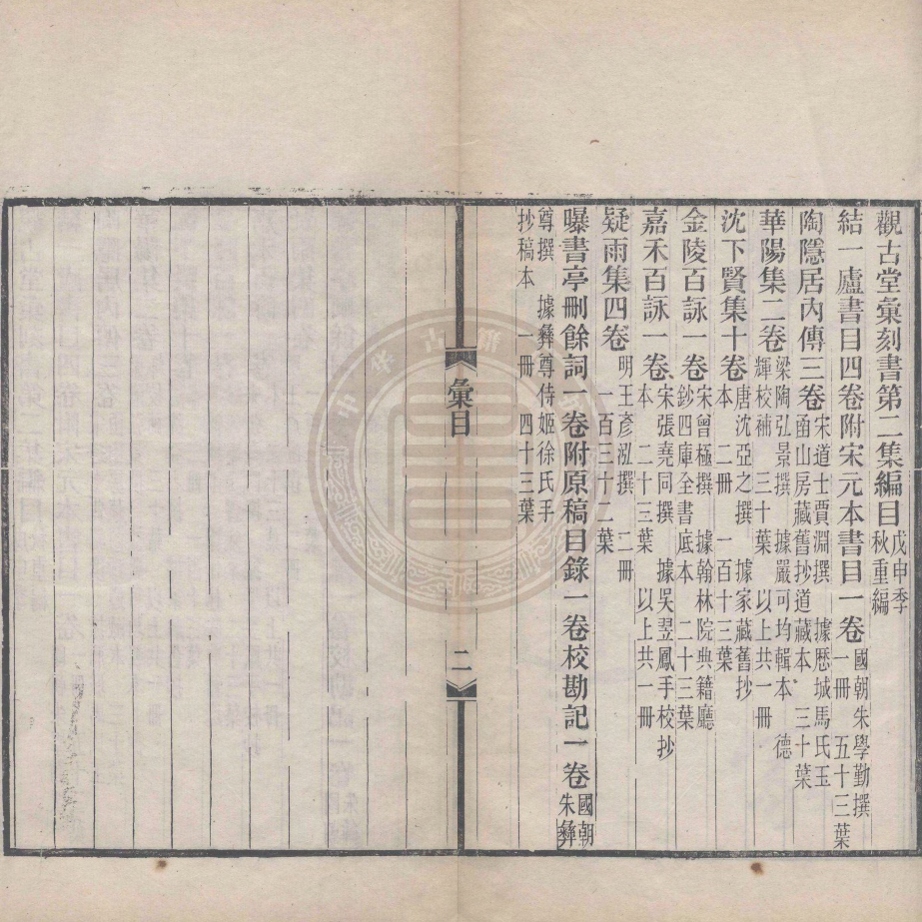 觀古堂彙刻書第二集編目戊申季秋重編
結一廬書目四卷附宋元本書目一卷國朝朱學勤撰一冊 五十三葉
陶隱居內傳三卷宋道士賈淵撰 據歷城馬氏玉函山房藏舊抄道藏本 三十葉
華陽集二卷梁陶弘景撰 據嚴可均輯本 德輝校補 三十葉 以上共一冊
沈下賢集十卷唐沈亞之撰 據家藏舊抄本 二冊 一百十三葉
金陵百詠一卷宋曾極撰 據翰林院典籍廳鈔四庫全書底本 二十三葉
嘉禾百詠一卷宋張堯同撰 據吳翌鳳手校抄本 二十三葉 以上共一冊
疑雨集四卷明王彥泓撰 二冊 一百三十二葉
曝書亭刪餘詞一卷附原稿目錄一卷校勘記一卷國朝朱彝
尊撰 據彝尊侍姬徐氏手抄稿本 一冊 四十三葉
彙目 二